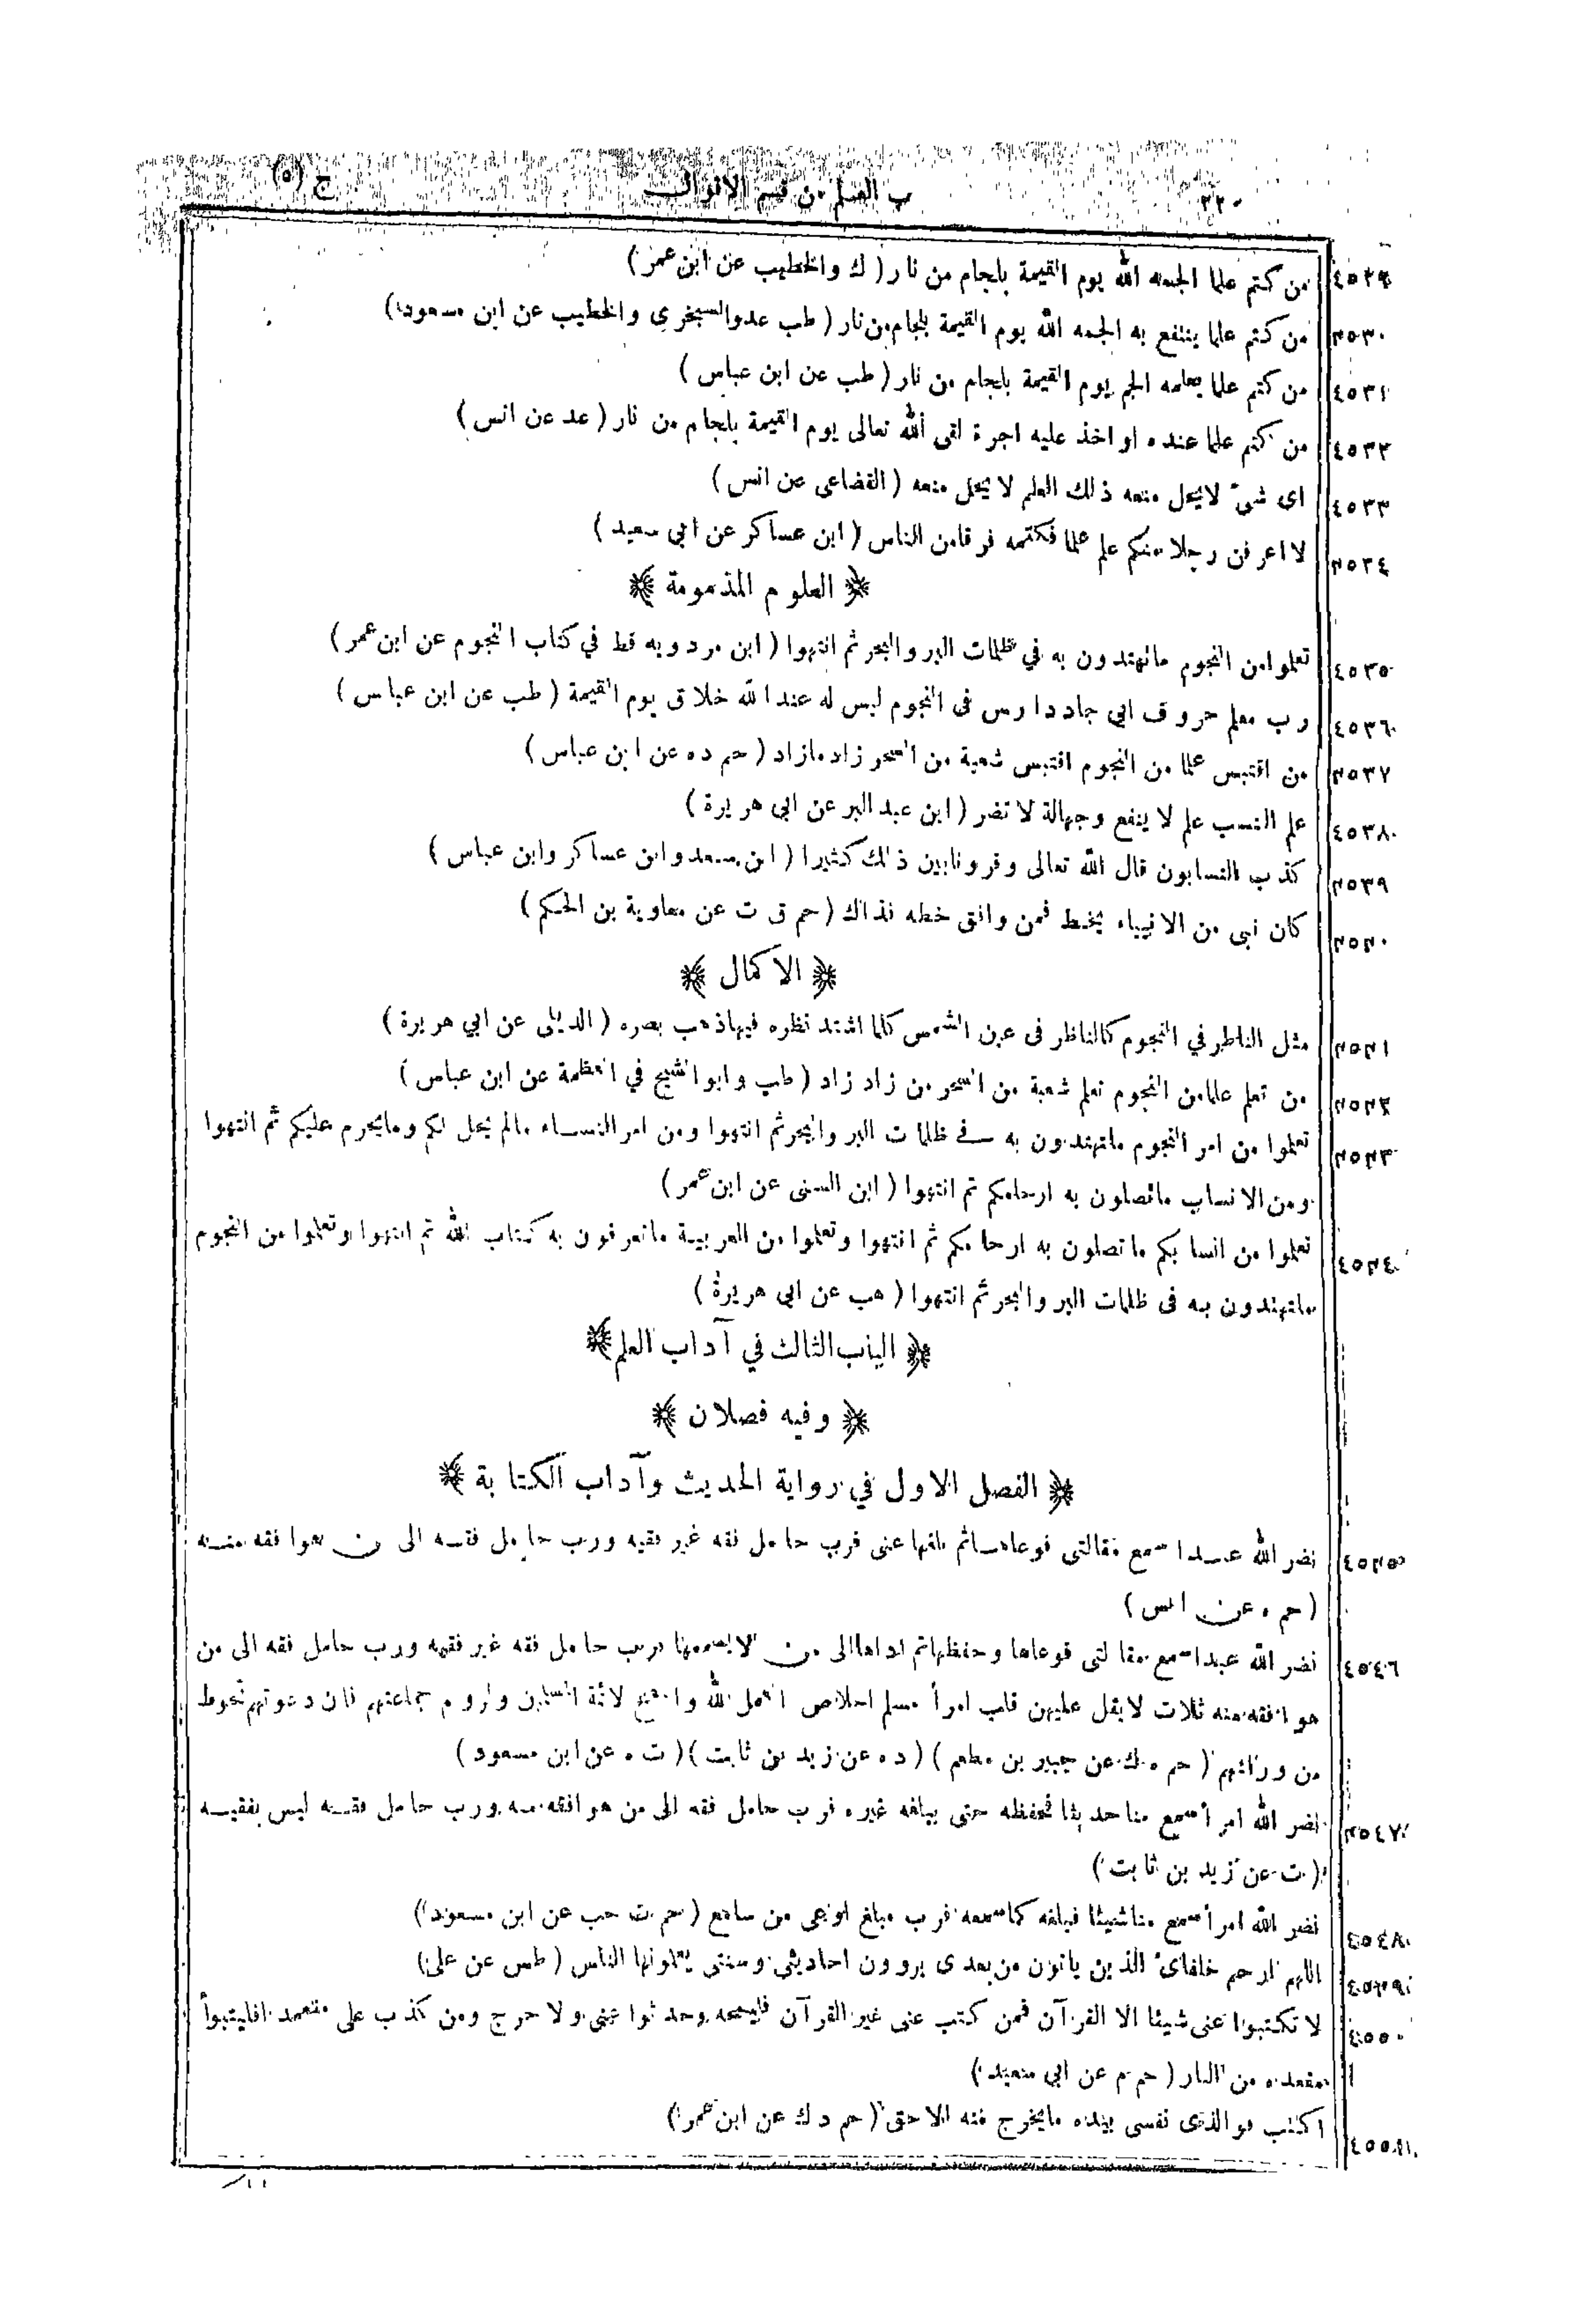 ٢٢٠ ب العلم من قسم الاقوال ج (٥)
٤٥٢٩ من كتم علما الجمه الله يوم القيمة بلجام من نار ( ك والخطيب عن ابن عمر )
٤٥٣٠ من كتم علما ينتفع به الجمه الله يوم القيمة بلجام من نار ( طب عد والسجزي والخطيب عن ابن مسعود )
٤٥٣١ من كتم علما يعلمه الجم يوم القيمة بلجام من نار ( طب عن ابن عباس )
٤٥٣٢ من كتم علما عنده او اخذ عليه اجرة لقى الله تعالى يوم القيمة بلجام من نار ( عد عن انس )
٤٥٣٣ اى شئ لايحل منعه ذلك العلم لا يحل منعه ( القضاعى عن انس )
٤٥٣٤ لا اعرفن رجلا منكم علم علما فكتمه فرقا من الناس ( ابن عساكر عن ابي سعيد )
﴿ العلوم المذمومة ﴾
٤٥٣٥ تعلموا من النجوم ماتهتدون به في ظلمات البر والبحر ثم انتهوا ( ابن مردويه قط في كتاب النجوم عن ابن عمر )
٤٥٣٦ رب معلم حروف ابي جاد دارس فى النجوم ليس له عند الله خلاق يوم القيمة ( طب عن ابن عباس )
٤٥٣٧ من اقتبس علما من النجوم اقتبس شعبة من السحر زاد مازاد ( حم د ه عن ابن عباس )
٤٥٣٨ علم النسب علم لا ينفع وجهالة لا تضر ( ابن عبد البر عن ابى هريرة )
٤٥٣٩ كذب النسابون قال الله تعالى وقرونا بين ذلك كثيرا ( ابن سعد وابن عساكر وابن عباس )
٤٥٤٠ كان نبى من الانبياء يخط فمن وافق خطه فذاك ( حم ق ت عن معاوية بن الحكم )
﴿ الاكمال ﴾
٤٥٤١ مثل الناظر في النجوم كالناظر فى عين الشمس كلما اشتد نظره فيها ذهب بصره ( الديلمى عن ابي هريرة )
٤٥٤٢ من تعلم علما من النجوم تعلم شعبة من السحر من زاد زاد ( طب وابوالشيخ في العظمة عن ابن عباس )
٤٥٤٣ تعلموا من امر النجوم ماتهتدون به في ظلمات البر والبحر ثم انتهوا ومن امر النساء مالم يحل لكم ومايحرم عليكم ثم انتهوا
ومن الانساب ماتصلون به ارحامكم ثم انتهوا ( ابن السنى عن ابن عمر )
٤٥٤٤ تعلموا من انسابكم ماتصلون به ارحامكم ثم انتهوا وتعلموا من العربية ماتعرفون به كتاب الله ثم انتهوا وتعلموا من النجوم
ماتهتدون به فى ظلمات البر والبحر ثم انتهوا ( هب عن ابى هريرة )
﴿ الباب الثالث في آداب العلم ﴾
﴿ وفيه فصلان ﴾
﴿ الفصل الاول في رواية الحديث وآداب الكتابة ﴾
٤٥٤٥ نضر الله عبدا سمع مقالتى فوعاها ثم بلغها عنى فرب حامل فقه غير فقيه ورب حامل فقه الى من هوا فقه منه
( حم ه عن انس )
٤٥٤٦ نضر الله عبدا سمع مقالتى فوعاها وحفظها ثم اداها الى من لا يسمعها فرب حامل فقه غير فقيه ورب حامل فقه الى من
هو افقه منه ثلاث لايغل عليهن قلب امرأ مسلم اخلاص العمل لله والنصح لائمة المسلمين ولزوم جماعتهم فان دعوتهم تحوط
من ورائهم ( حم ه ك عن جبير بن مطعم ) ( د ه عن زيد بن ثابت ) ( ت ه عن ابن مسعود )
٤٥٤٧ نضر الله امرأ سمع منا حديثا فحفظه حتى يبلغه غيره فرب حامل فقه الى من هو افقه منه ورب حامل فقه ليس بفقيه
( ت عن زيد بن ثابت )
٤٥٤٨ نضر الله امرأ سمع منا شيئا فبلغه كما سمعه فرب مبلغ اوعى من سامع ( حم ت حب عن ابن مسعود )
٤٥٤٩ اللهم ارحم خلفائ الذين ياتون من بعدى يروون احاديثى وسنتى يعلمونها الناس ( طس عن على )
٤٥٥٠ لا تكتبوا عنى شيئا الا القرآن فمن كتب عنى غير القرآن فليمحه وحدثوا عنى ولا حرج ومن كذب على متعمدا فليتبوأ
مقعده من النار ( حم م عن ابى سعيد )
٤٥٥١ اكتب فو الذى نفسى بيده مايخرج منه الا حق ( حم د ك عن ابن عمر )